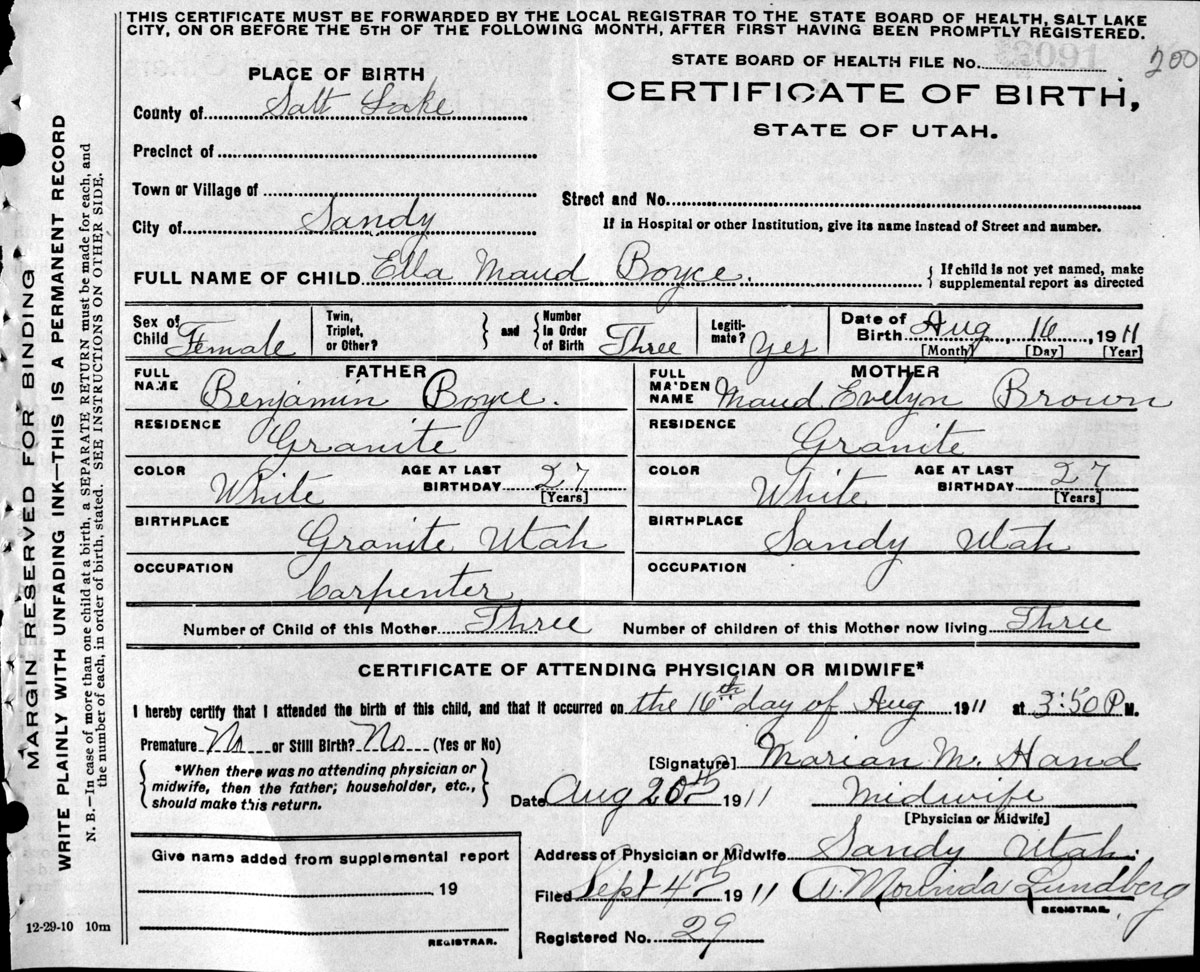 THIS CERTIFICATE MUST BE FORWARDED BY THE LOCAL REGISTRAR TO THE STATE BOARD OF HEALTH, SALT LAKE
CITY, ON OR BEFORE THE 5TH OF THE FOLLOWING MONTH, AFTER FIRST HAVING BEEN PROMPTLY REGISTERED.
STATE BOARD OF HEALTH FILE No. 200
CERTIFICATE OF BIRTH,
STATE OF UTAH.
PLACE OF BIRTH
County of Salt Lake
Precinct of
Town or Village of
Street and No.
City of Sandy
If in Hospital or other Institution, give its name instead of Street and number.
FULL NAME OF CHILD Ella Maud Boyce. { If child is not yet named, make
supplemental report as directed
Sex of Child Female
Twin, Triplet, or Other? } and { Number in Order of Birth Three
Legitimate? Yes
Date of Birth Aug 16, 1911
[Month] [Day] [Year]
FATHER
FULL NAME Benjamin Boyce.
RESIDENCE Granite
COLOR White AGE AT LAST BIRTHDAY 27
[Years]
BIRTHPLACE Granite Utah
OCCUPATION Carpenter
MOTHER
FULL MAIDEN NAME Maud Evelyn Brown
RESIDENCE Granite
COLOR White AGE AT LAST BIRTHDAY 27
[Years]
BIRTHPLACE Sandy Utah
OCCUPATION
Number of Child of this Mother Three Number of children of this Mother now living Three
CERTIFICATE OF ATTENDING PHYSICIAN OR MIDWIFE*
I hereby certify that I attended the birth of this child, and that it occurred on the 16th day of Aug 1911 at 3:50 P M.
Premature No or Still Birth? No (Yes or No)
*When there was no attending physician or
midwife, then the father; householder, etc.,
should make this return.
[Signature] Marian M. Hand
Date Aug 20th 1911 Midwife
[Physician or Midwife]
Give name added from supplemental report
19
REGISTRAR.
Address of Physician or Midwife Sandy Utah.
Filed Sept 4th 1911 A. Morinda Lundberg
REGISTRAR.
Registered No. 29
12-29-10 10m
MARGIN RESERVED FOR BINDING
WRITE PLAINLY WITH UNFADING INK—THIS IS A PERMANENT RECORD
N. B.—In case of more than one child at a birth, a SEPARATE RETURN must be made for each, and
the number of each, in order of birth, stated. SEE INSTRUCTIONS ON OTHER SIDE.